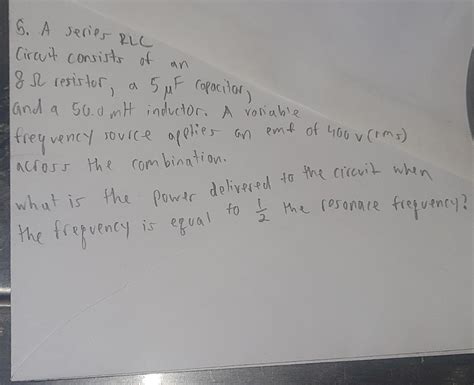 6. A series RLC
Circuit consists of an
8 Ω resistor, a 5 μF capacitor,
and a 50.0 mH inductor. A variable
frequency source applies an emf of 400 v (rms)
across the combination.
what is the power delivered to the circuit when
the frequency is equal to 1/2 the resonace frequency?